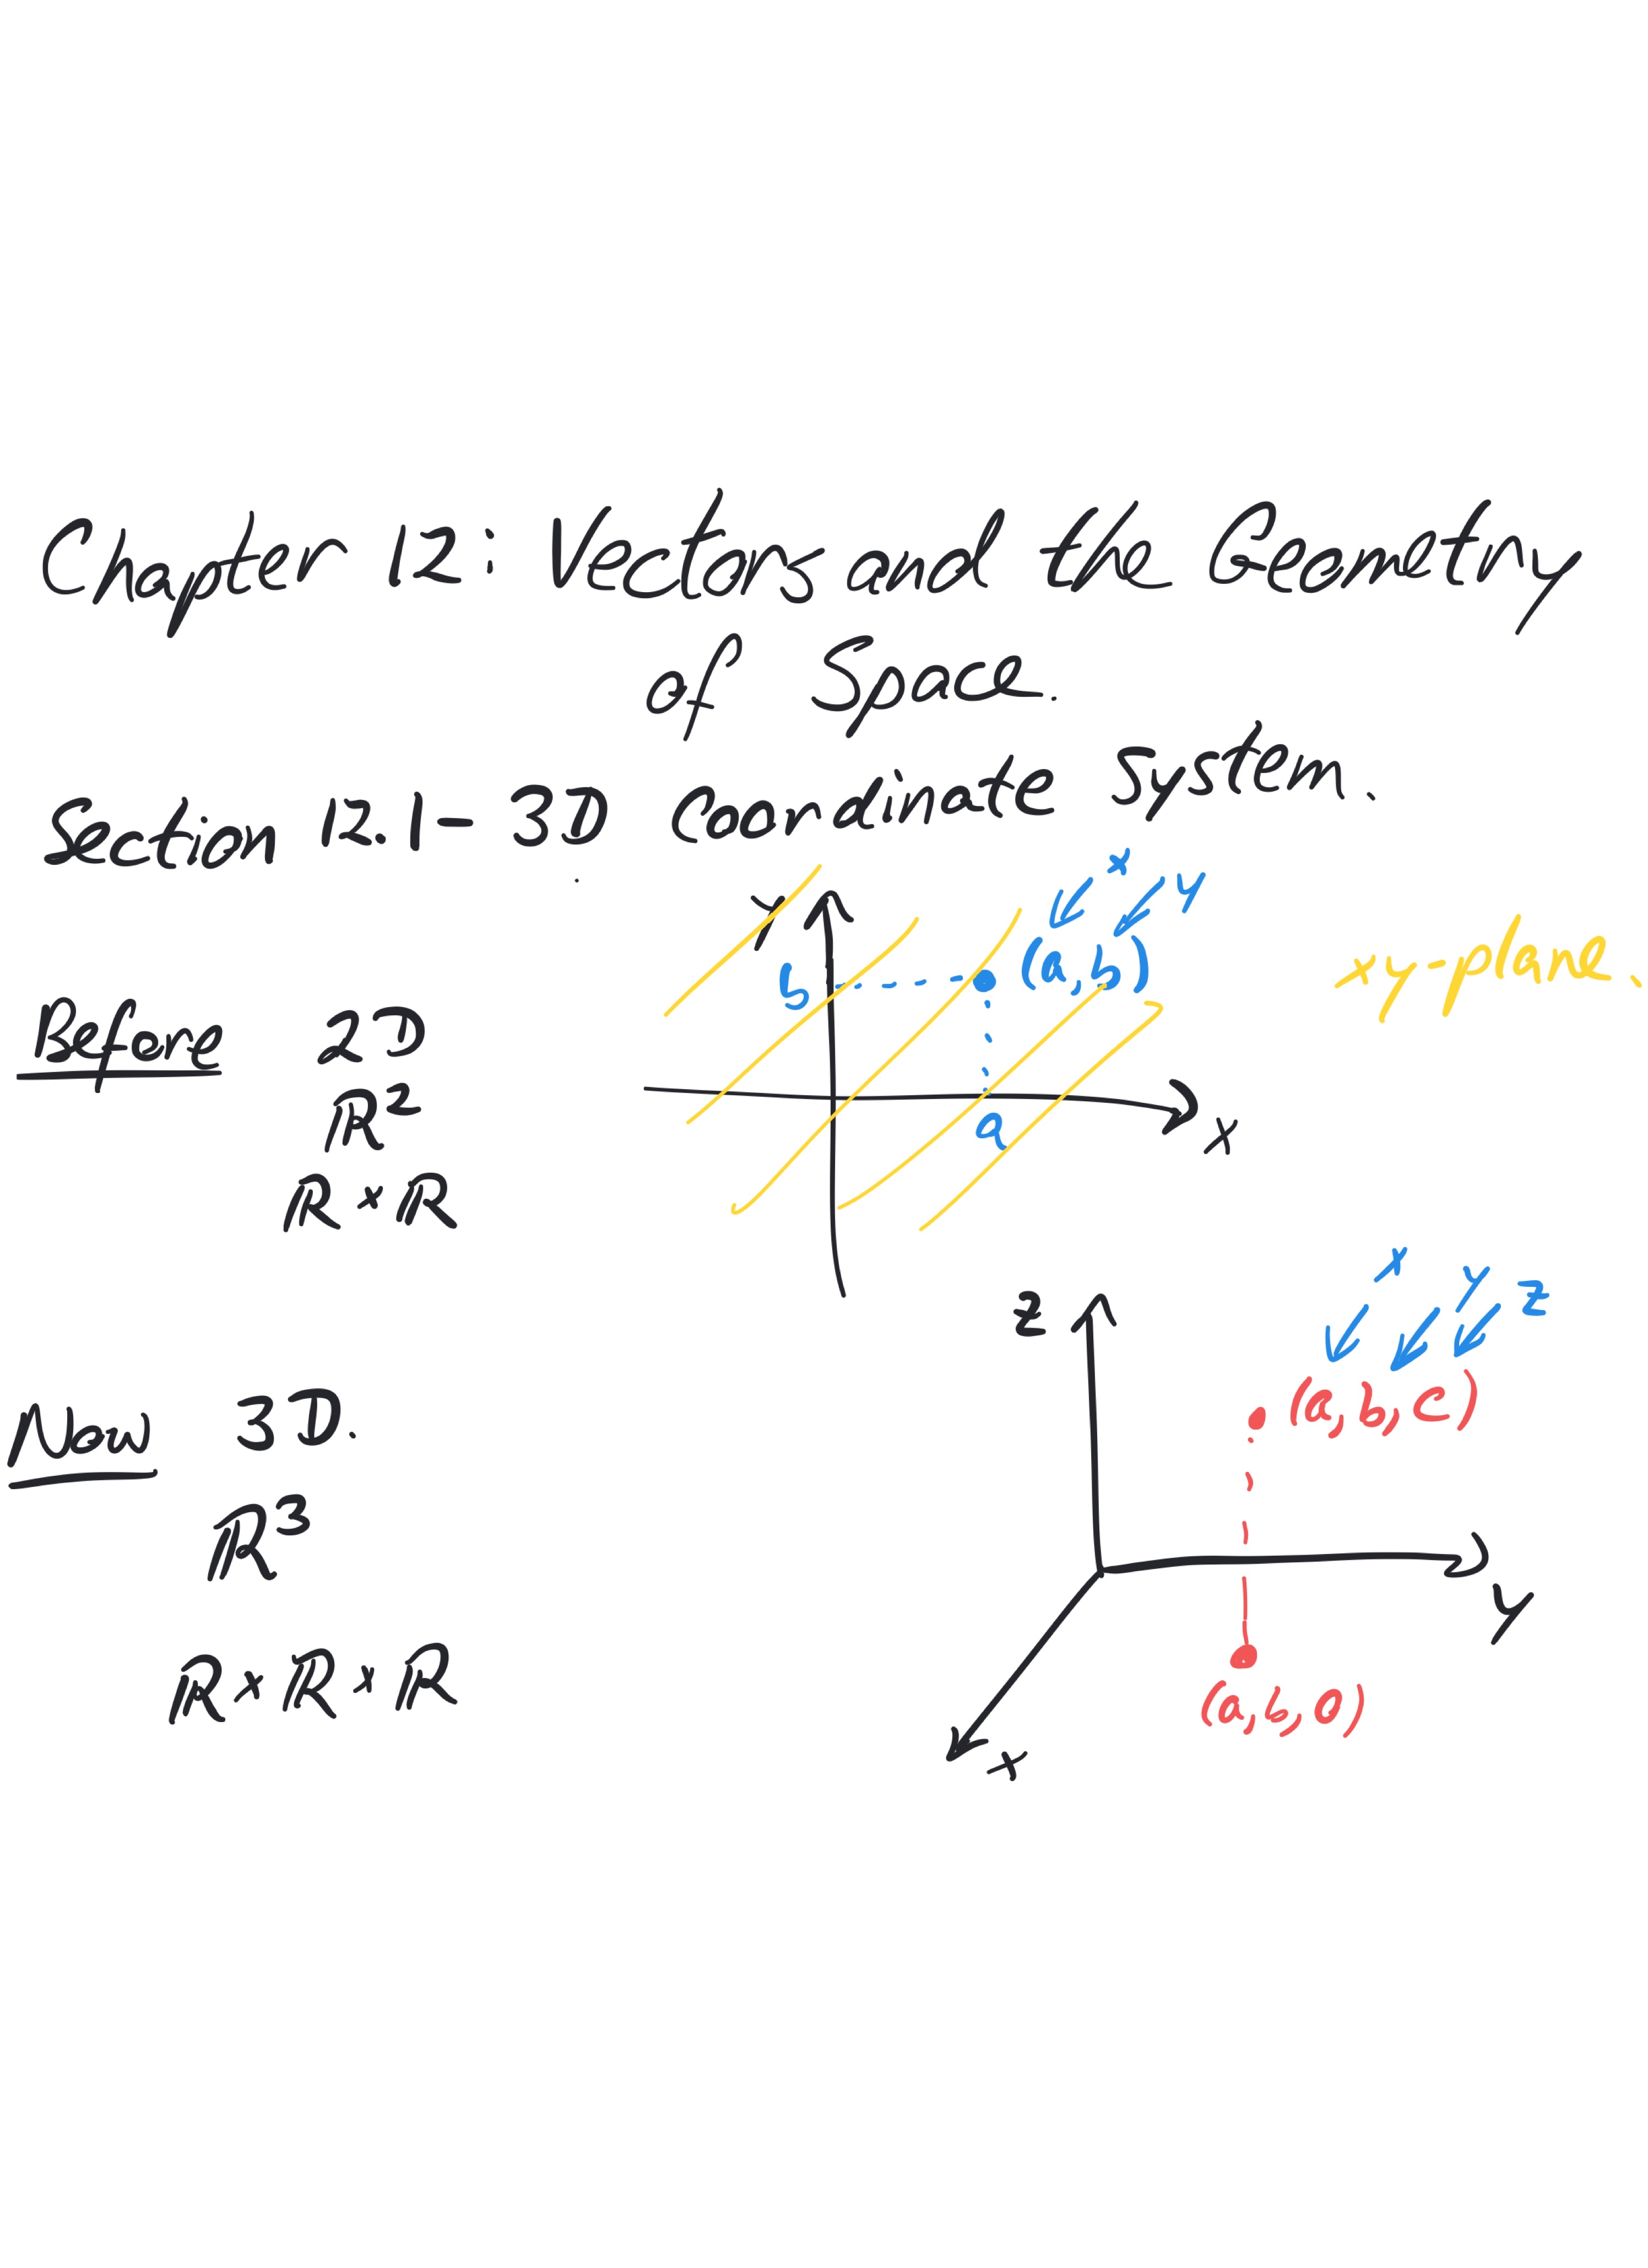 Chapter 12: Vectors and the Geometry
of Space.
Section 12.1 - 3D Coordinate System.
Before 2D
R²
R × R
y
x
b
a
x y
(a, b)
xy-plane.
Now 3D.
R³
R × R × R
z
y
x
x y z
(a, b, c)
(a, b, 0)